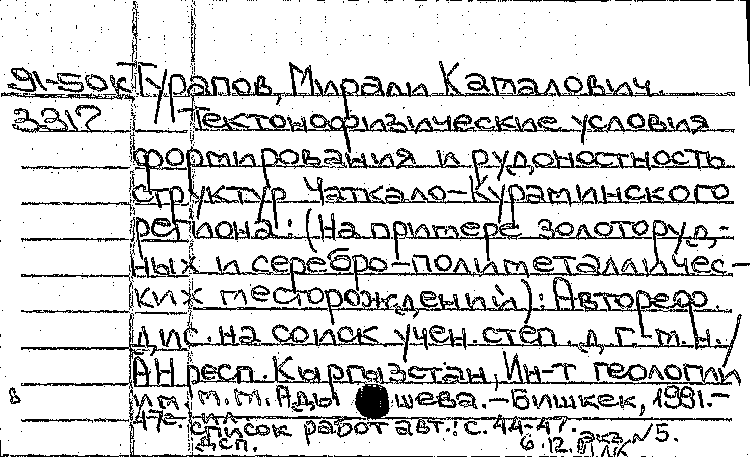 91-50к Турапов, Мирали Камалович.
3317 Тектонофизические условия
формирования и рудоностность
структур Чаткало-Кураминского
региона: (На примере золоторуд-
ных и серебро-полиметалличес-
ких месторождений): Автореф.
дис. на соиск учен. степ. д. г.-м. н. /
АН респ. Кыргызстан, Ин-т геологии
им. М. М. Ады шева. - Бишкек, 1991. -
47с. ил
список работ авт.: с. 44-47.
Дсп. 6.12. экз №5.